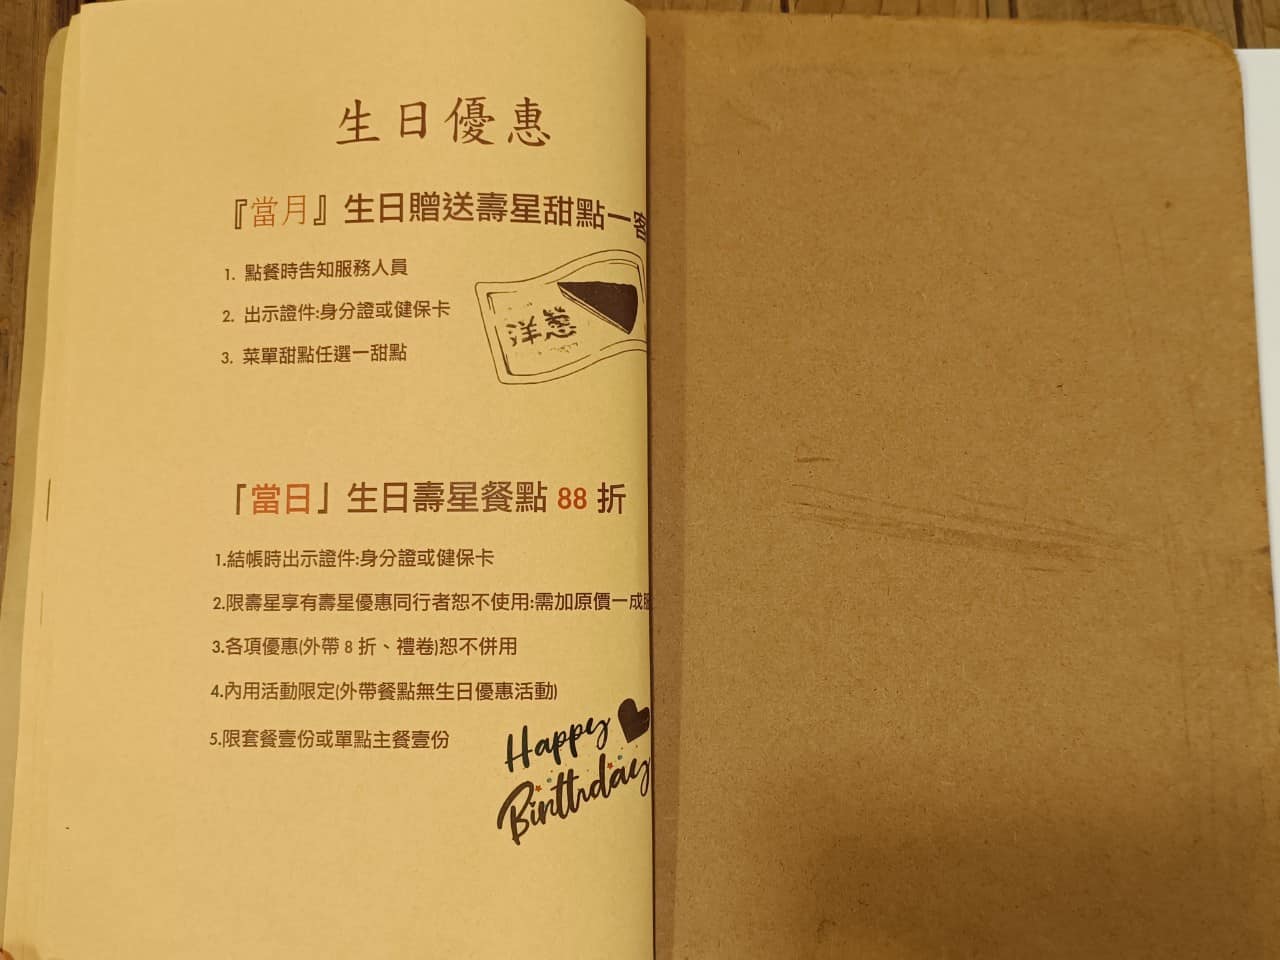 生日優惠
『當月』生日贈送壽星甜點一客
1. 點餐時告知服務人員
2. 出示證件:身分證或健保卡
3. 菜單甜點任選一甜點
洋蔥
「當日」生日壽星餐點 88 折
1.結帳時出示證件:身分證或健保卡
2.限壽星享有壽星優惠同行者恕不使用:需加原價一成
3.各項優惠(外帶 8 折、禮卷)恕不併用
4.內用活動限定(外帶餐點無生日優惠活動)
5.限套餐壹份或單點主餐壹份
Happy
Birthday